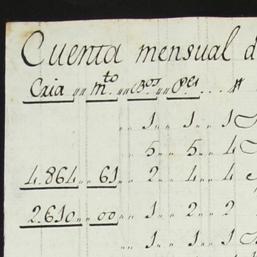 Cuenta mensual d
Cria ,, m.to ,, Bos ,, Pes
,, 1 ,, 1 ,, 1
,, 5 ,, 5 ,, 4
4.864 ,, 61 ,, 2 ,, 4 ,, 4
2.610 ,, 00 ,, 1 ,, 2 ,, 2
,, 1 ,, 1 ,, 1